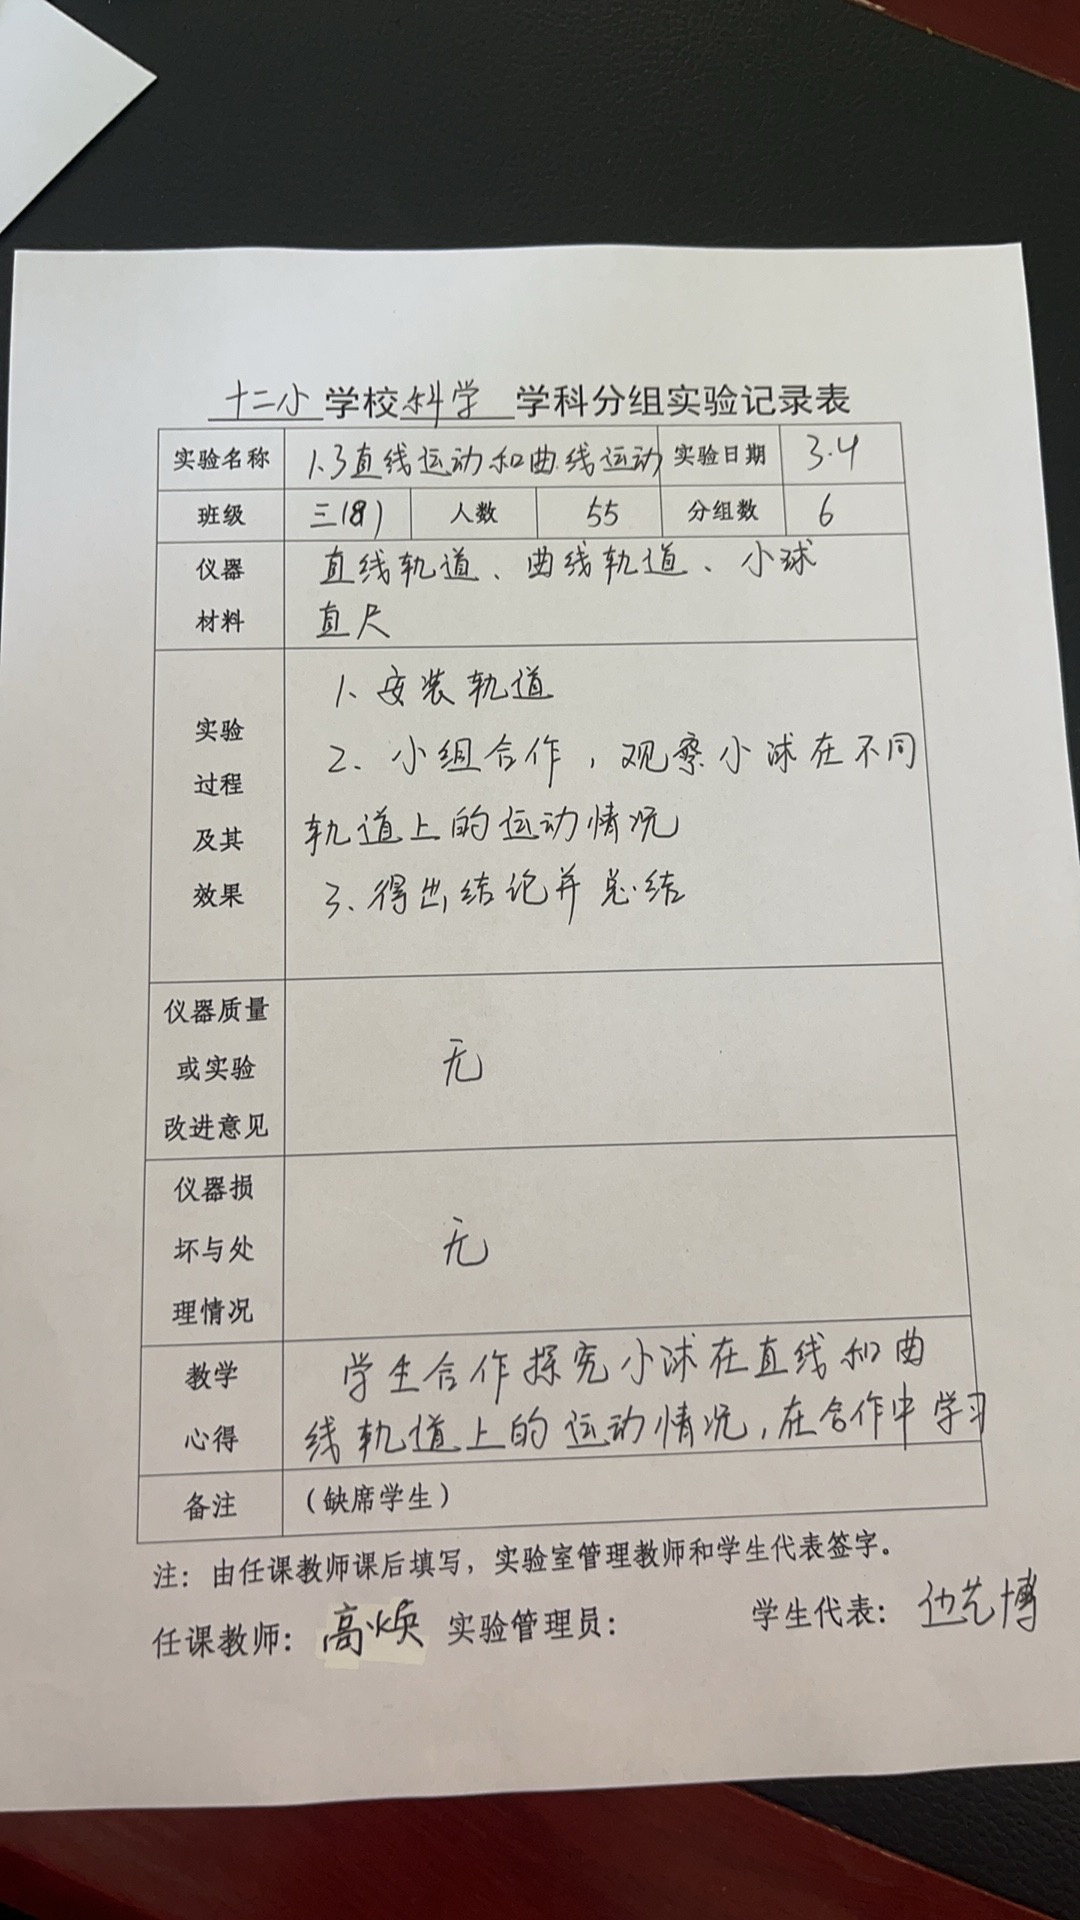 十二小学校科学学科分组实验记录表
实验名称 1.3直线运动和曲线运动 实验日期 3.4
班级 三(8) 人数 55 分组数 6
仪器材料
直线轨道、曲线轨道、小球
直尺
实验过程及其效果
1、安装轨道
2、小组合作,观察小球在不同
轨道上的运动情况
3、得出结论并总结
仪器质量或实验改进意见
无
仪器损坏与处理情况
无
教学心得
学生合作探究小球在直线和曲
线轨道上的运动情况,在合作中学习
备注 (缺席学生)
注:由任课教师课后填写,实验室管理教师和学生代表签字。
任课教师:高焕 实验管理员: 学生代表:边艺博